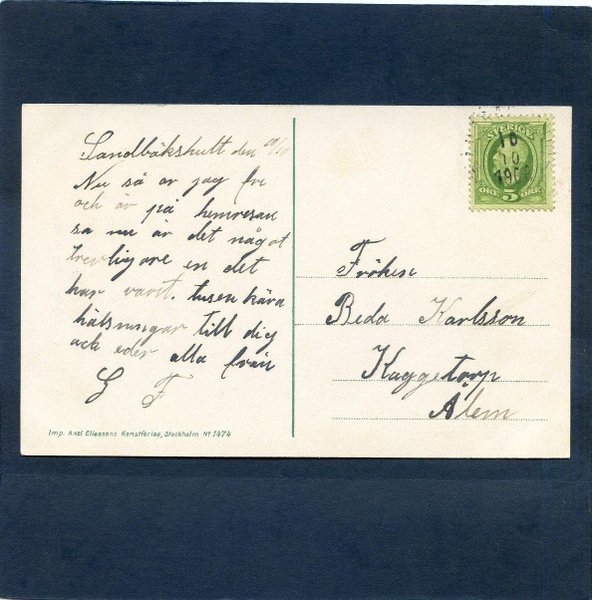 Sandbäkshult den 10/10
Nu så är jag fri
och är på hemresan
så nu är det något
trevligare en det
har varit. tusen kära
hälsningar till dig
och eder alla från
G F
Imp. Axel Eliassons Konstförlag, Stockholm No 1474
SVERIGE
ÖRE 5 ÖRE
10
10
190
Fröken
Beda Karlsson
Kaggetorp
Ålem